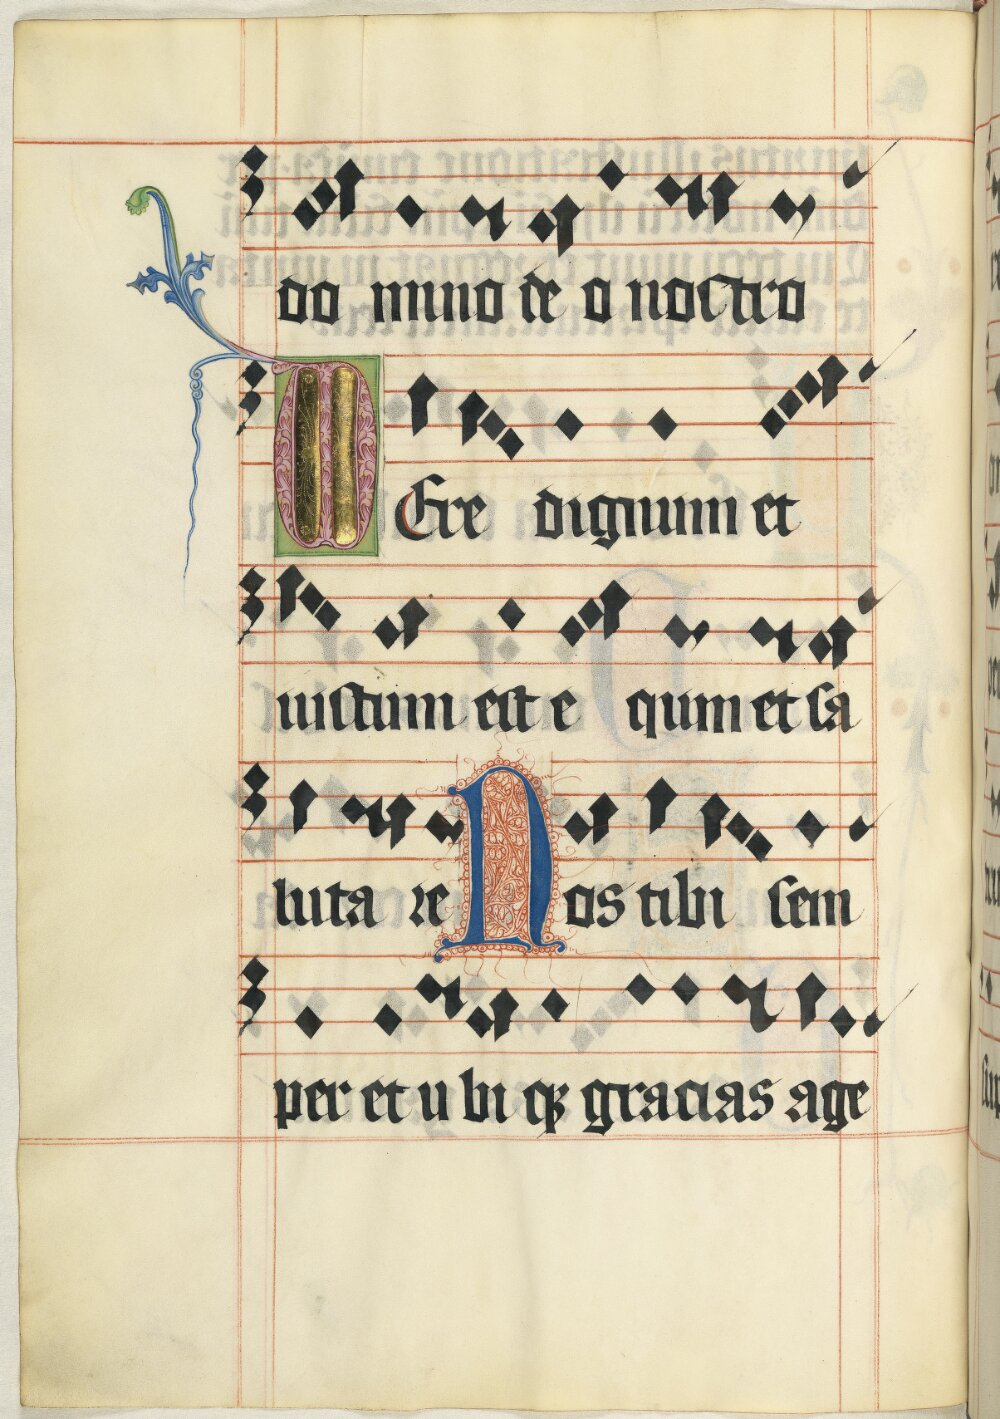 do mino de o nostro
VEre dignum et
iustum est e quum et sa
luta re Nos tibi sem
per et u bi qꝫ gracias age